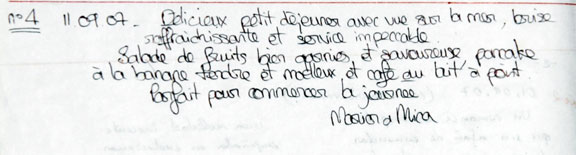 n°4 11 07 07_ Délicieux petit déjeuner avec vue sur la mer, brise
raffraichissante et service impeccable.
Salade de fruits bien garnies et savoureuse pancake
à la banane tendre et moelleux et café au lait à point.
Parfait pour commencer la journée
Marion & Mina